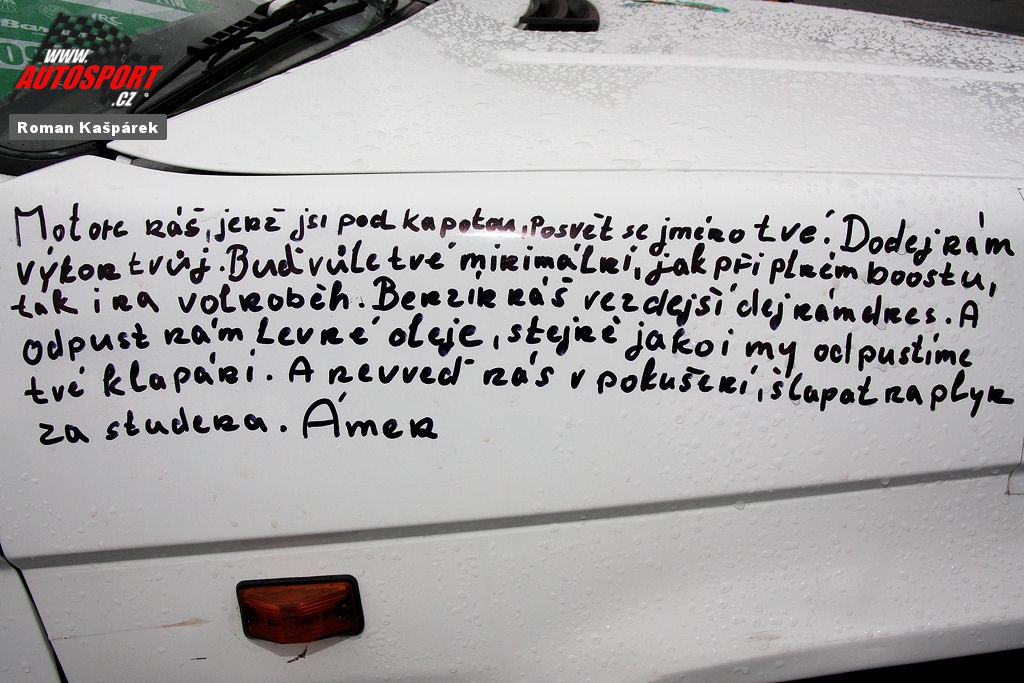 JRC
Bar
WWW.
AUTOSPORT
.CZ
Roman Kašpárek
Motore náš, jenž jsi pod kapotou, Posvět se jméno tvé. Dodej nám
výkon tvůj. Buď vůle tvé minimální, jak při plném boostu,
tak i na volnoběh. Benzín náš vezdejší dej nám dnes. A
odpusť nám Levné oleje, stejně jako i my odpustíme
tvé klapání. A nevveď nás v pokušení, šlapat na plyn
za studena. Ámen